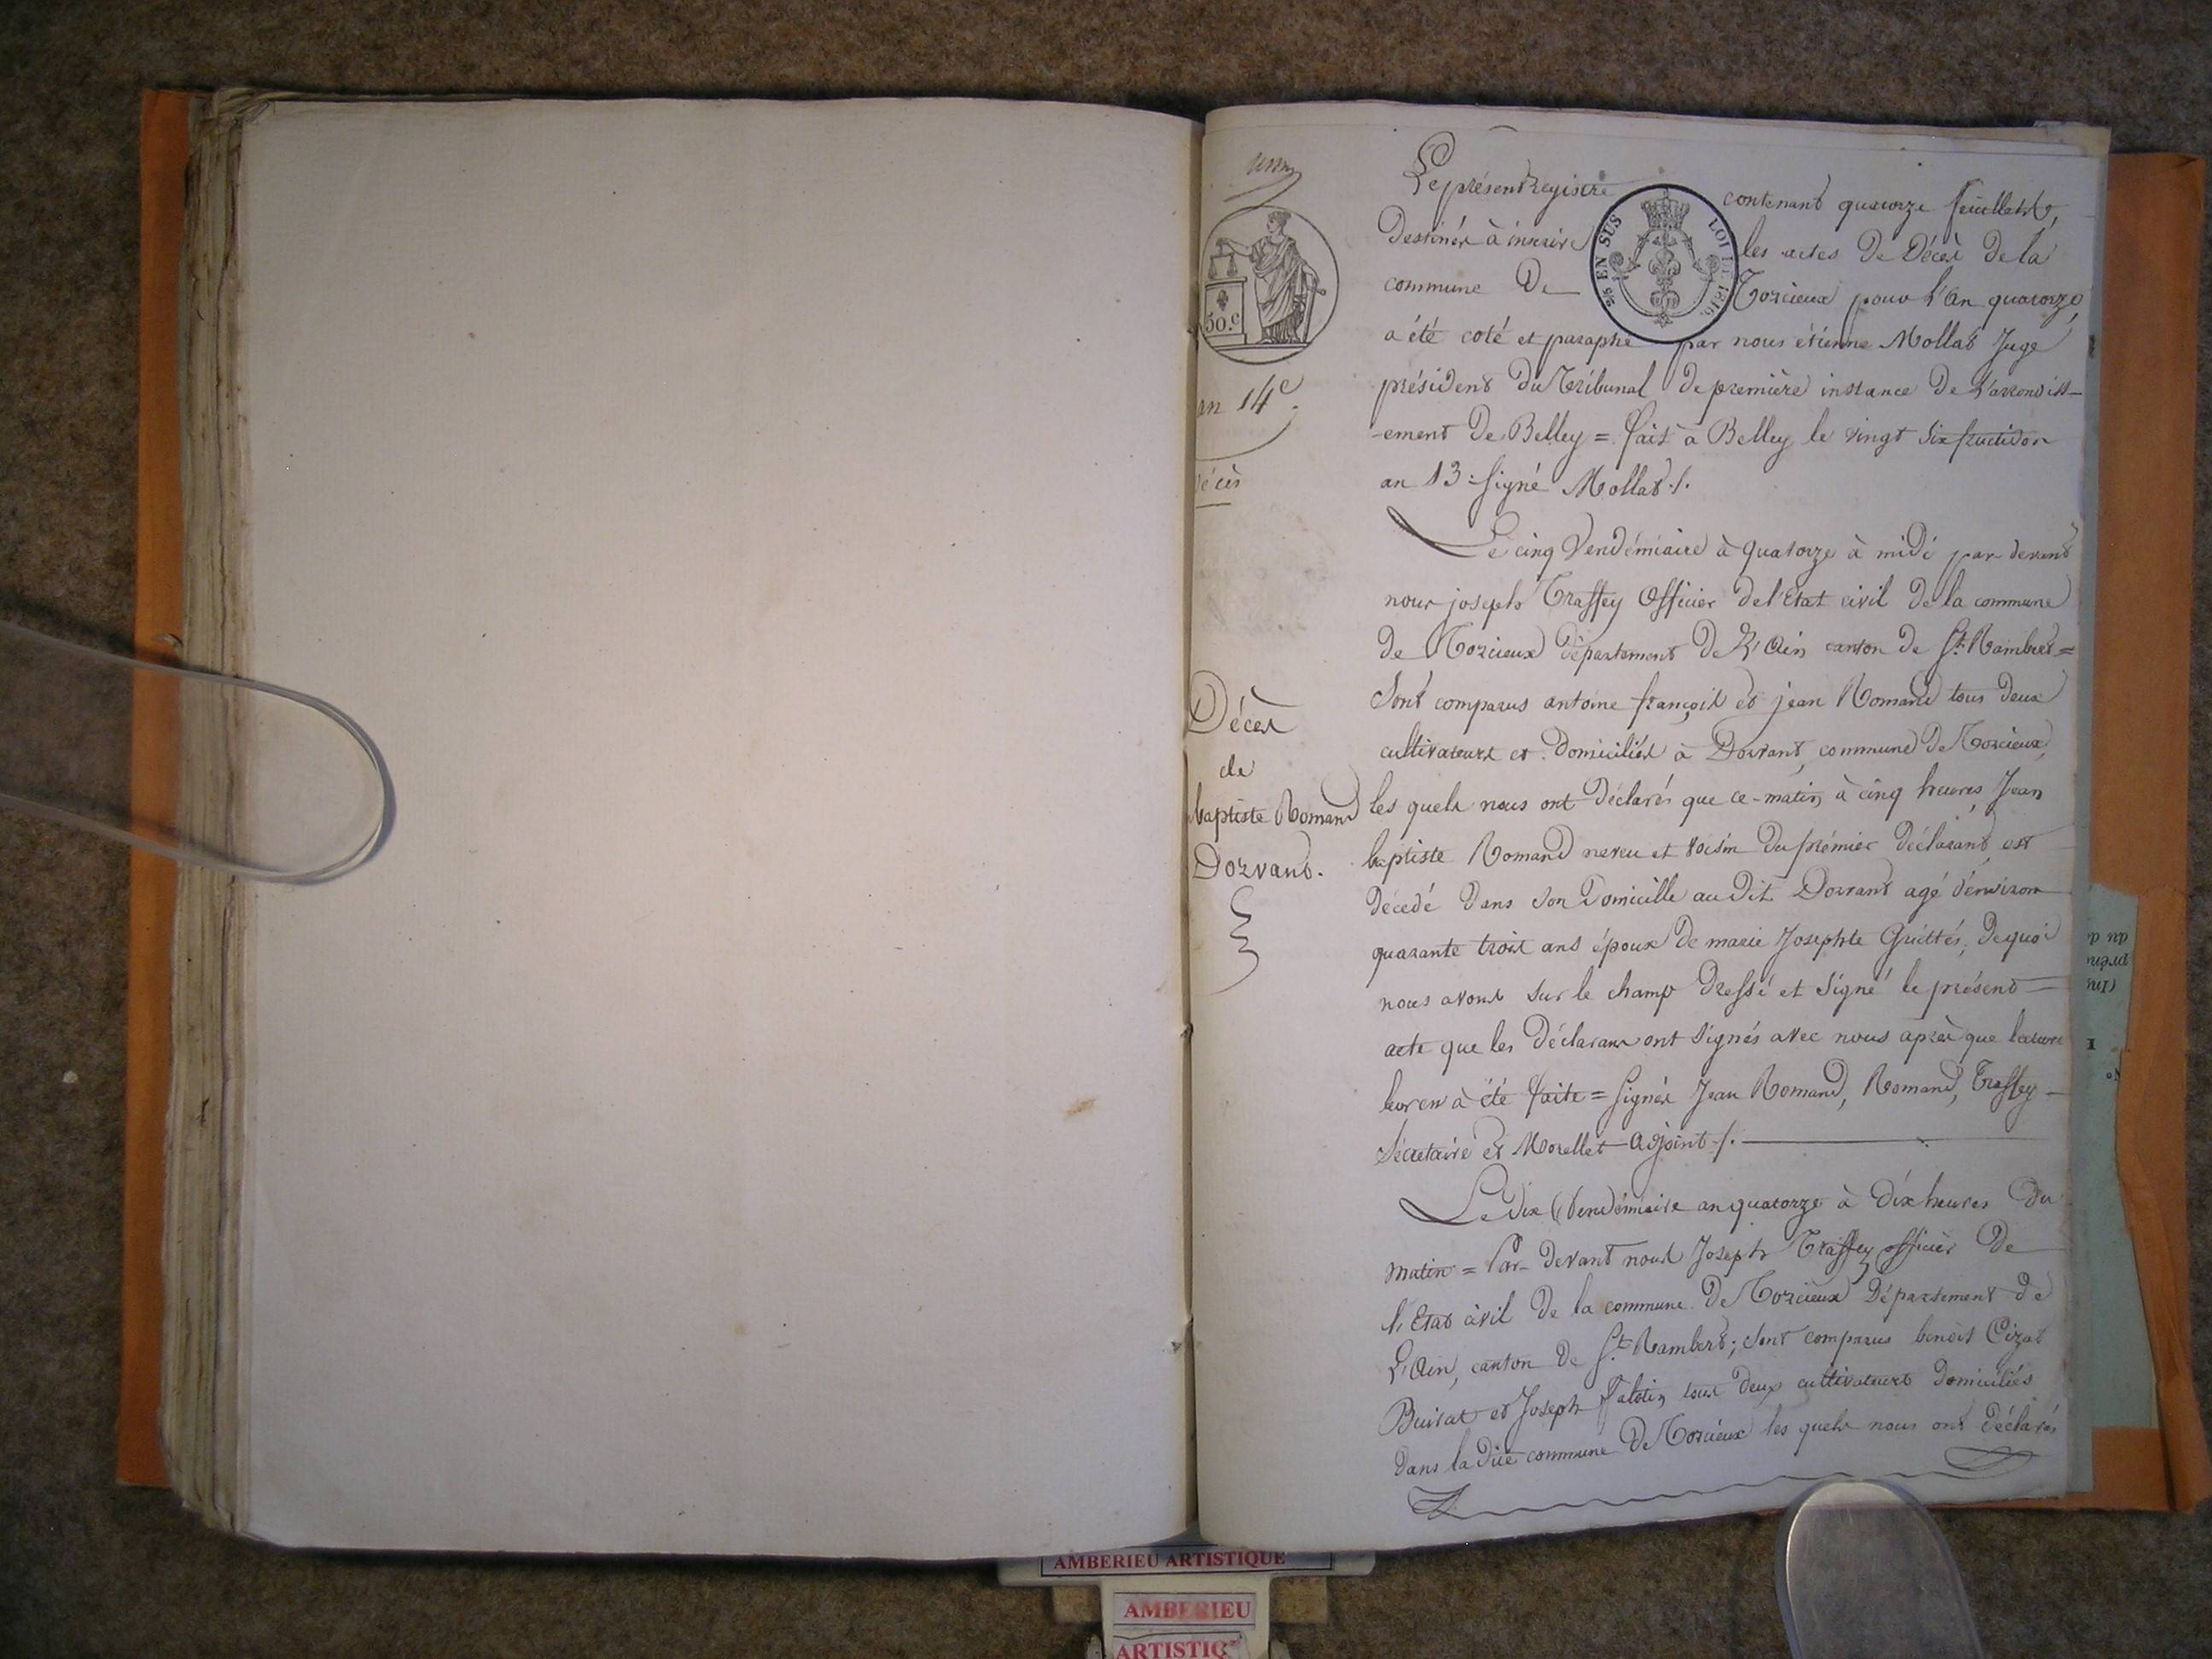 Le présent Registre contenant quatorze feuillets,
Destinés à inscrire les actes De Décès De la
commune De Torcieux pour L'an quatorze,
a été coté et paraphé par nous étienne Mollat Juge
président Du Tribunal De première instance De L'arrondiss-
-ement De Belley = fait à Belley le vingt Six fructidor
an 13 : Signé Mollat ./.
50.c
EN SUS
LOI DE 1816.
an 14e
Décès
Le cinq Vendémiaire à quatorze à midi par devant
nous joseph Traffey Officier de l'Etat civil De la commune
de Torcieux département De L'Ain canton de St. Rambert =
Sont comparus antoine françois et jean Romand tous deux
cultivateurs et Domiciliés à Dorvant, commune De Torcieux,
les quels nous ont Déclarés que ce-matin à cinq heures Jean
baptiste Romand neveu et voisin Du prémier Déclarant, est
Décedé Dans Son Domicille au Dit Dorvant agé D'environ
quarante trois ans époux De marie Josephte Griettés, De quoi
nous avons Sur le champ Dressé et Signé le présent
acte que les Déclarans ont Signés avec nous après que lecture
leur en à été faite = Signés Jean Romand, Romand, Traffey
Sécretaire et Morellet Adjoint ./.
Décès
de
baptiste Romand
Dorvant.
Le Dix Vendémiaire an quatorze à Dix heures Du
matin = Par Devant nous Joseph Traffey officier De
l'Etat civil De la commune De Torcieux Département De
L'Ain, canton De St. Rambert ; Sont comparus benoit Cizat
Buirat et Joseph falotin tous Deux cultivateurs Domiciliés
Dans la Dite commune De Torcieux les quels nous ont Déclarés
AMBERIEU ARTISTIQUE
AMBERIEU
ARTISTIQ